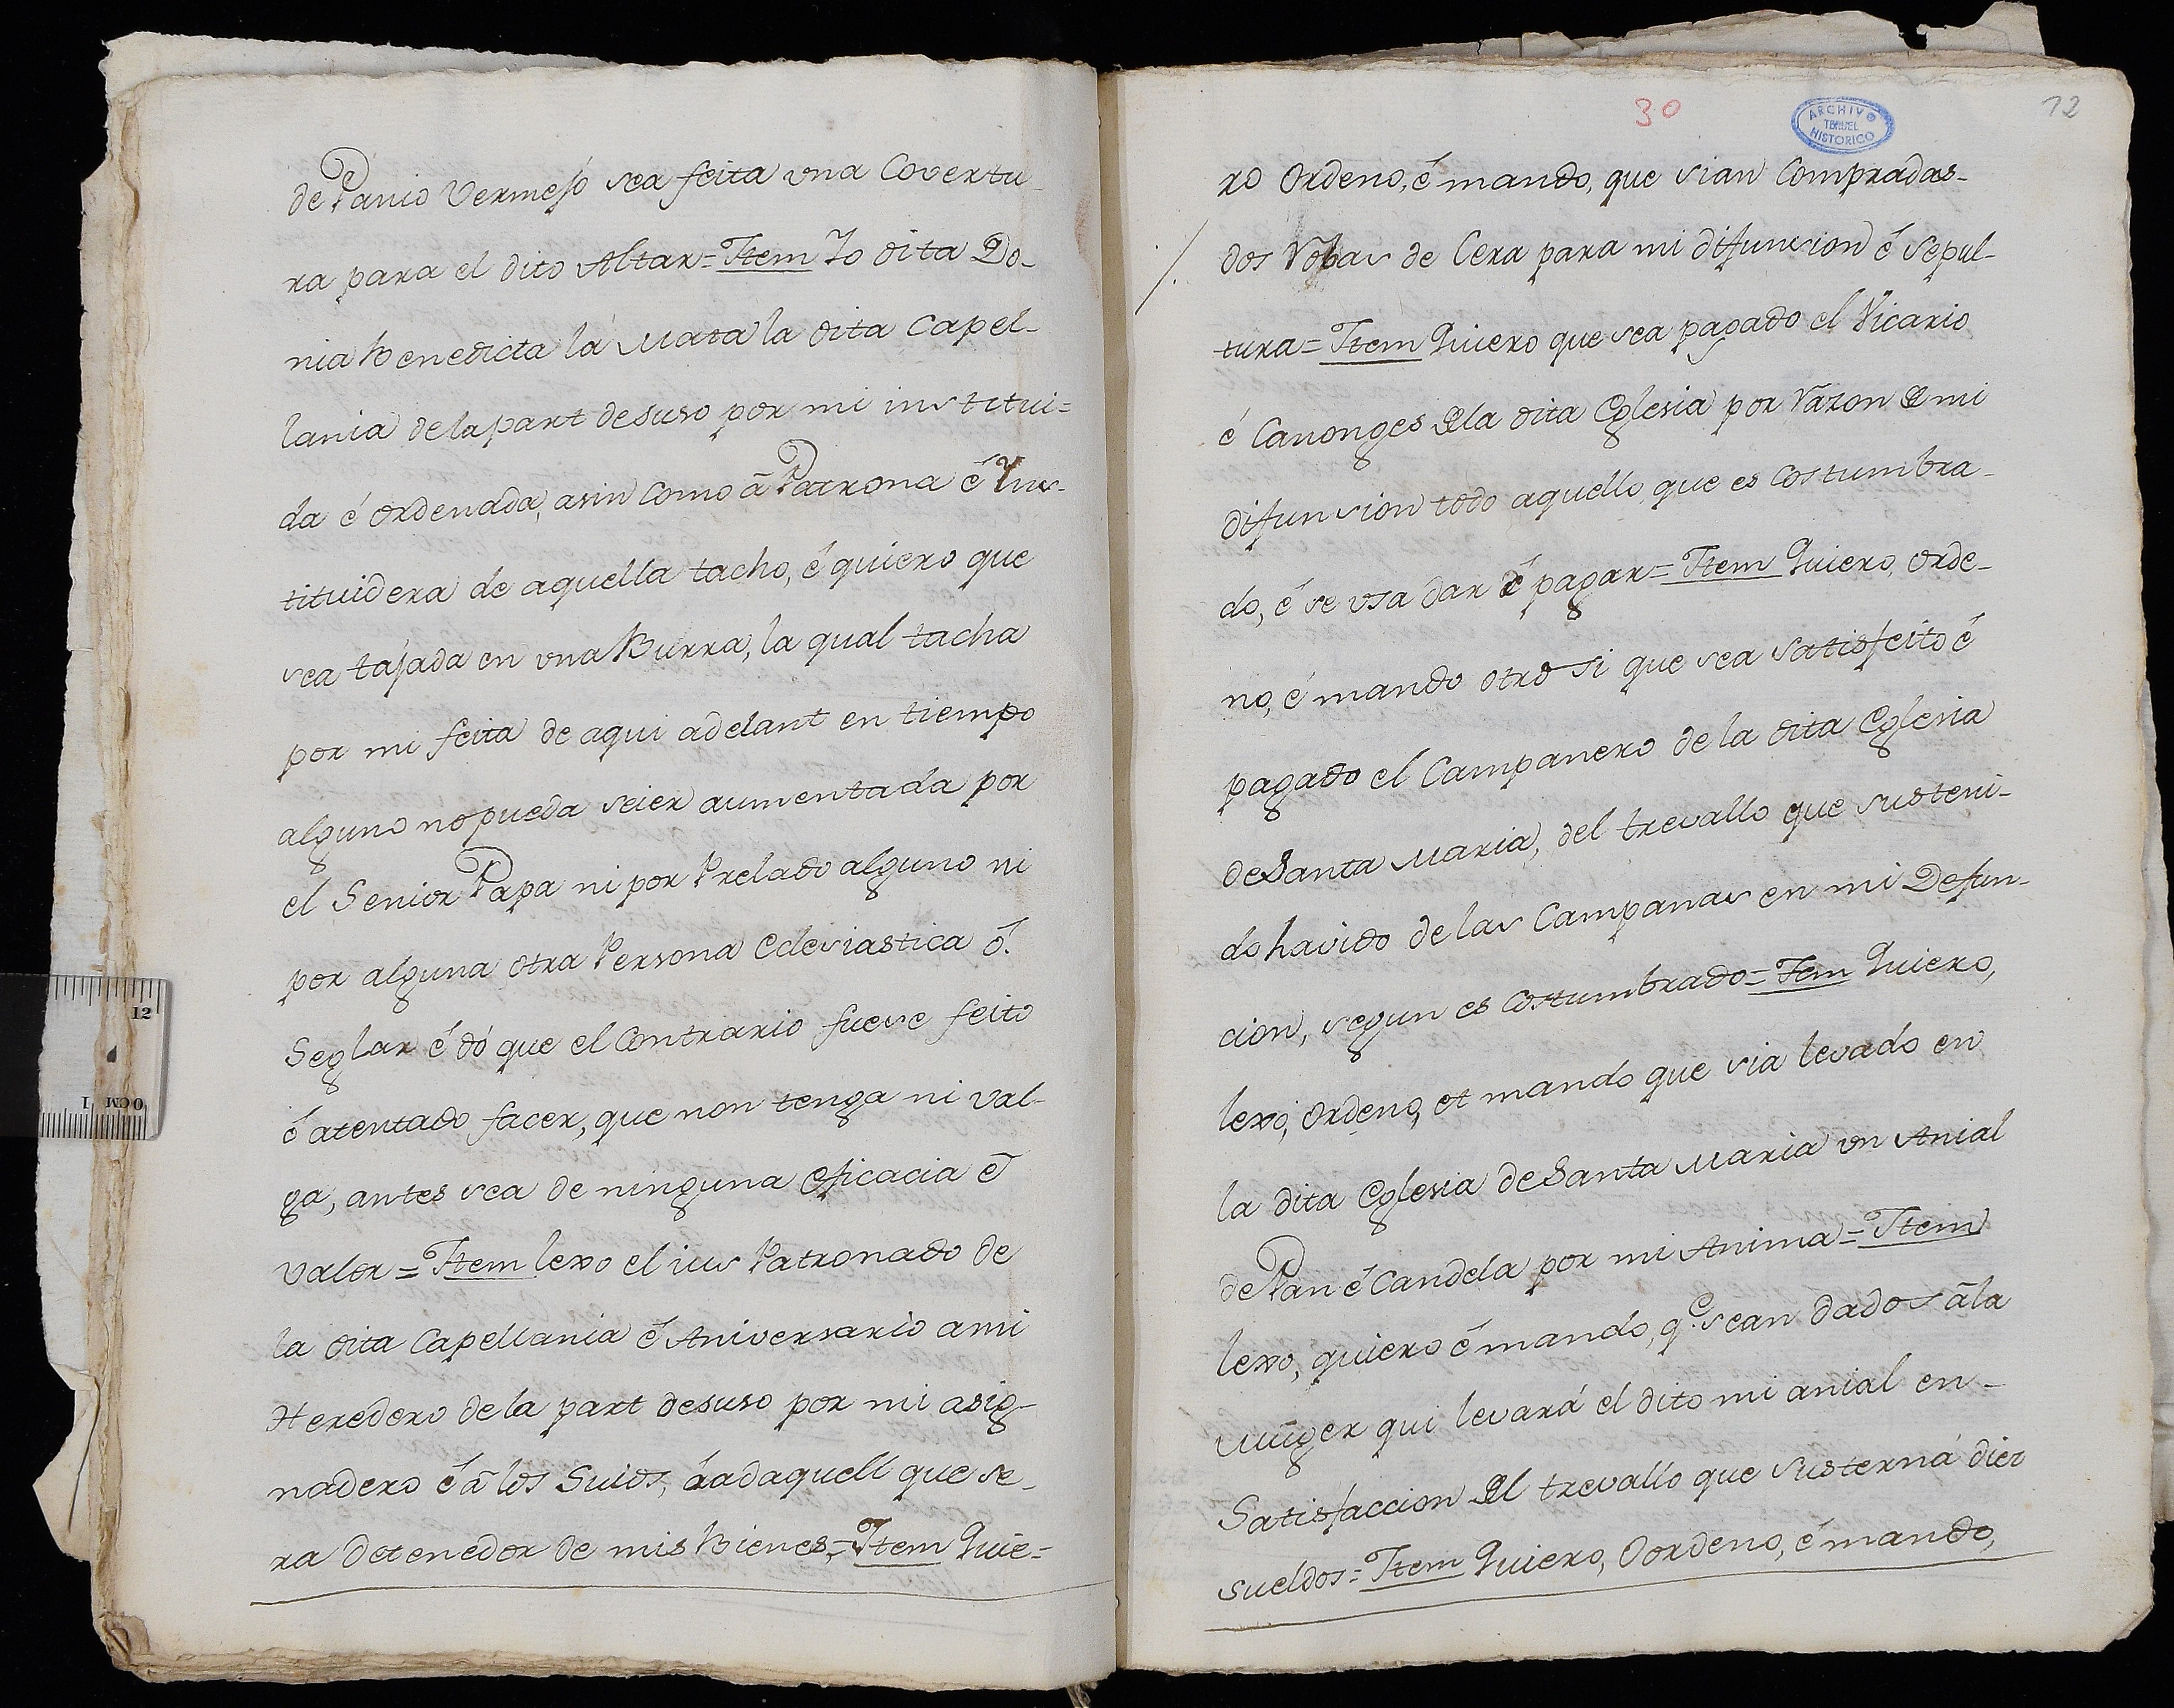 de Panio Vermejo sea feita vna Covertu-
ra para el dito Altar= Item Io dita Do-
nia Benedicta la Mata la dita Capel-
lania dela part desuso por mi institui=
da é ordenada, asin como â Patrona é Ins-
tituidera de aquella tacho, é quiero que
sea tajada en vna Burra, la qual tacha
por mi feita de aqui adelant en tiempo
alguno no pueda seier aumentada por
el Senior Papa ni por Prelado alguno ni
por alguna otra Persona Eclesiastica ó
Seglar é dó que el Contrario fuese feito
ó atentado facer, que non tenga ni val-
ga, antes sea de ninguna eficacia é
valor = Item lexo el ius Patronado de
la dita Capellania é Aniversario a mi
Heredero dela part desuso por mi asig-
nadero é â los Suios, áadaquell que se-
ra detenedor de mis Bienes,= Item Quie=
30
ARCHIVO
TERUEL
HISTORICO
12
ro Ordeno, é mando, que sian Compradas-
dos de Cera para mi difunsion é sepul-
tura= Item Quiero que sea pagado el Vicario
é Canonges dela dita Eglesia por Razon de mi
difunsion todo aquello que es costumbra-
do, é se vsa dar é pagar= Item Quiero, orde-
no, é mando otro si que sea satisfeito é
pagado el Campanero de la dita Eglesia
de Santa Maria, del trevallo que susteni-
do havido de las Campanas en mi Defun-
cion, segun es Costumbrado= Item Quiero,
lexo, ordeno, et mando que sia levado en
la dita Eglesia de Santa Maria vn Anial
de Pan é Candela por mi Anima= Item
lexo, quiero é mando, q.e sean dados â la
muger qui levará el dito mi anial en-
Satisfaccion del trevallo que susterná diez
sueldos= Item Quiero, Oordeno, é mando,